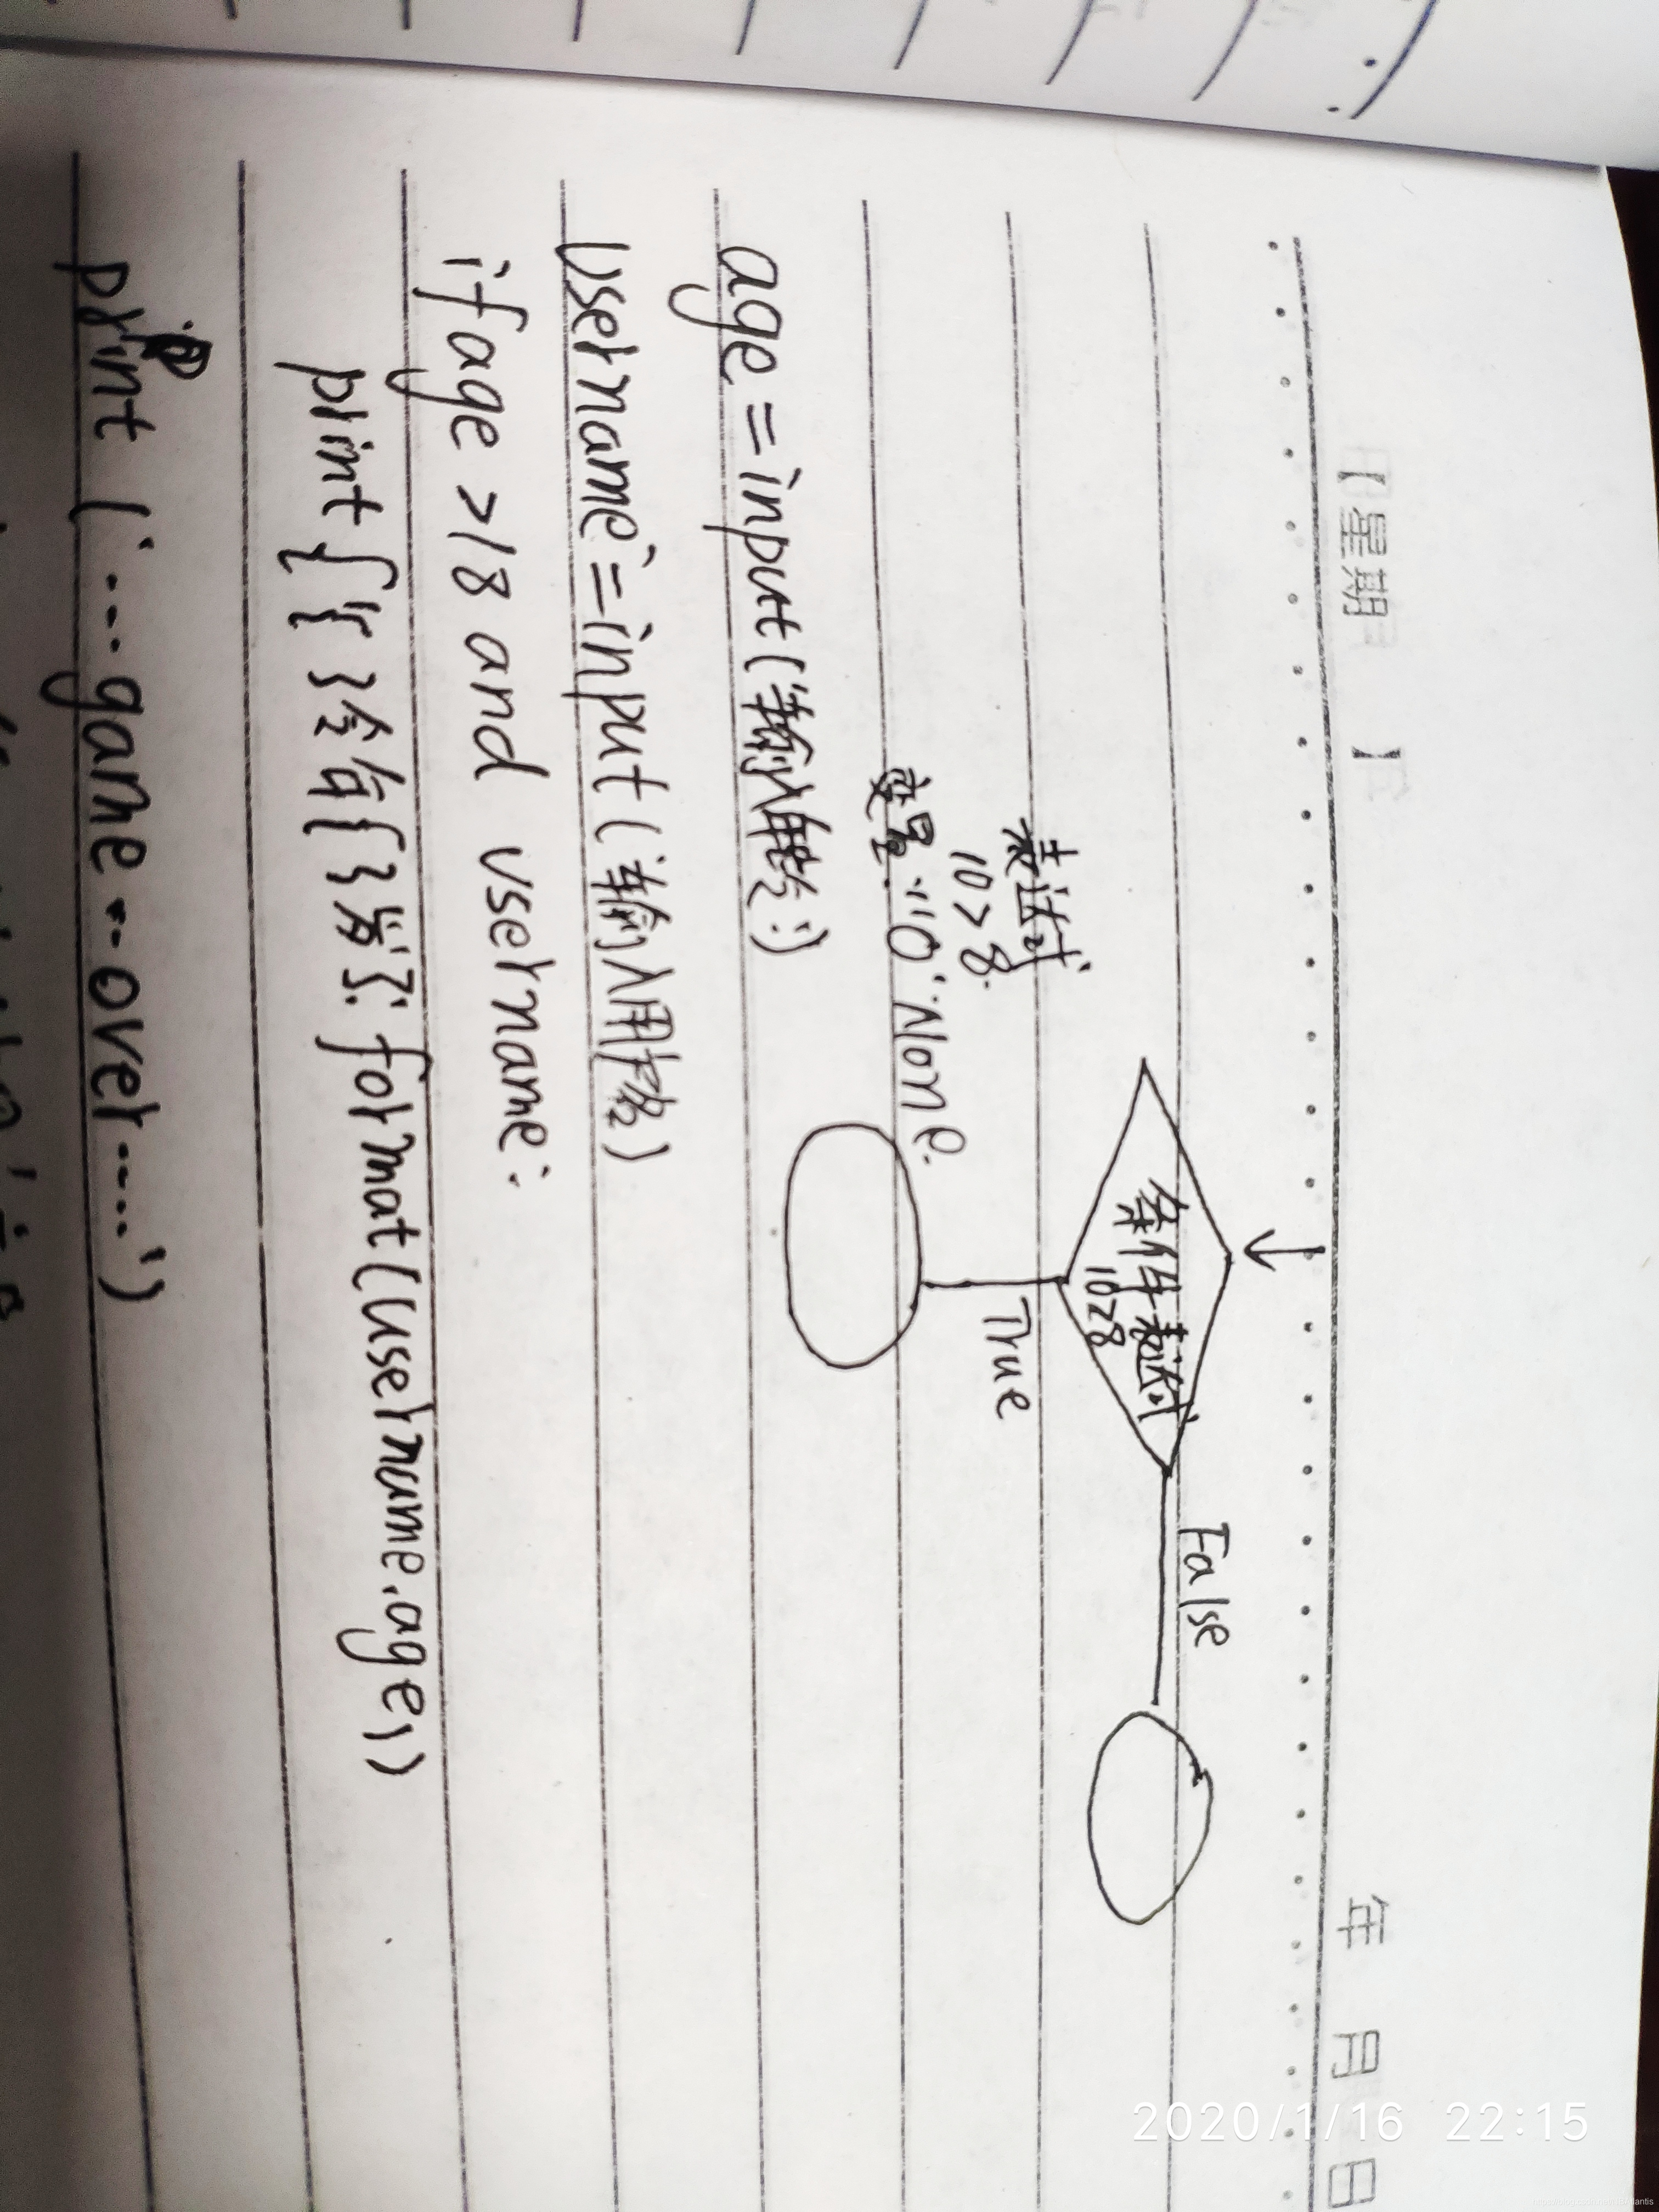 【星期 】 年 月 日
条件表达式
10>8
False
True
表达式
10>8.
变量. '' 0. None.
age=input(输入年龄:)
username=input(输入用户名)
if age >18 and username:
print('{ }今年{ }岁了.format(username.age))
print ('....game..over.....')
2020/1/16 22:15